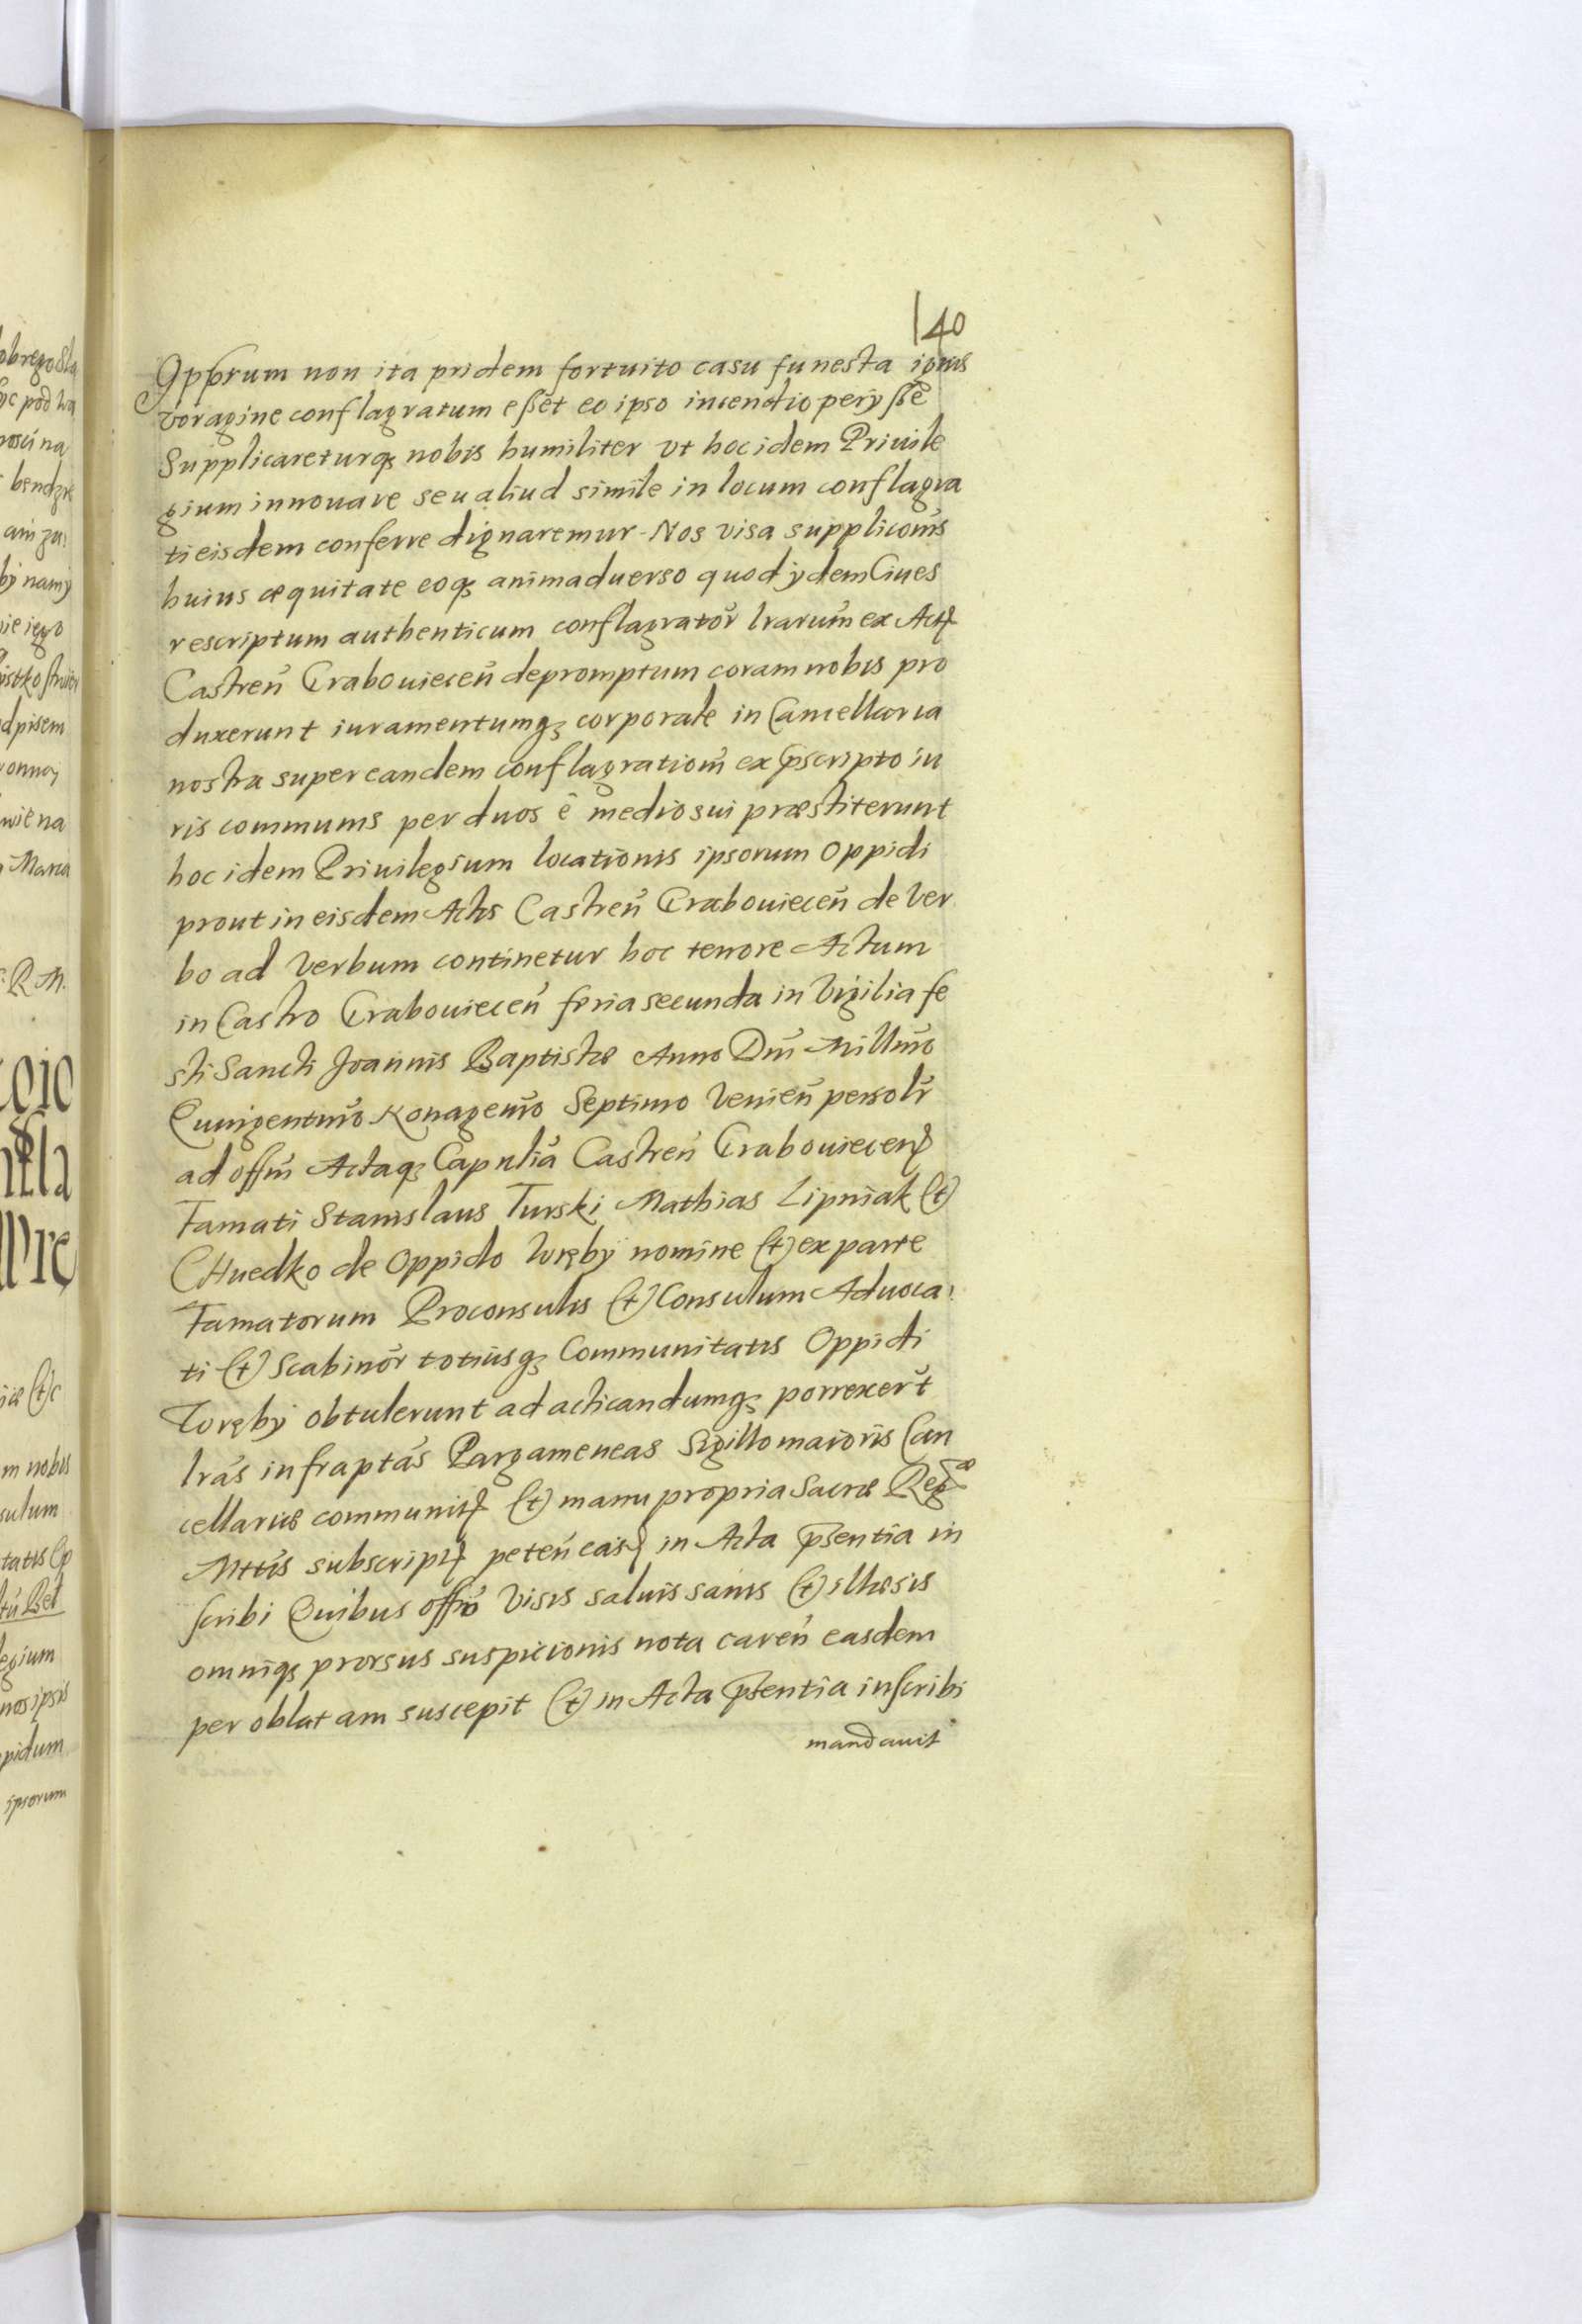 140
Opprum non ita pridem fortuito casu funesta ignis
voragine conflagratum esset eo ipso incendio perijsse
Supplicareturq3 nobis humiliter vt hoc idem Priuile
gium innouare seu aliud simile in locum conflagra
ti eisdem conferre dignaremur. Nos visa supplicōnis
huius æquitate eoq3 animaduerso quod ijdem Ciues
rescriptum authenticum conflagratōr lrarum ex Actis
Castreñ Grabouieceñ depromptum coram nobis pro
duxerunt iuramentumq3 corporale in Cancellaria
nostra super eandem conflagrationē ex pscripto iu
ris communis per duos ê medio sui præstiterunt
hoc idem Priuilegium locationis ipsorum Oppidi
prout in eisdem Actis Castreñ Grabouieceñ de ver
bo ad verbum continetur hoc tenore Actum
in Castro Grabouieceñ feria secunda in Vigilia fe
sti Sancti Joannis Baptistæ Anno Dni Millmo
Quingentmo Nonagemo Septimo Venieñ personlr
ad offm Actaq3 Capnlia Castreñ Grabouiecen
Famati Stanislaus Turski Mathias Lipniak (et)
Chuedko de Oppido Woręby nomine (et) ex parte
Famatorum Proconsulis (et) Consulum Aduoca
ti (et) Scabinōr totiusq3 Communitatis Oppidi
Woręby obtulerunt ad acticandumq3 porrexerūt
lras infraptas Pargameneas Sigillo maioris Can
cellariæ communit (et) manu propria Sacræ Regæ
Mttis subscript peteñ eas in Acta pñsentia in
scribi Quibus offm visis saluis sanis (et) illæsis
omniq3 prorsus suspicionis nota careñ easdem
per oblatam suscepit (et) in Acta pñsentia inscribi
mandauit